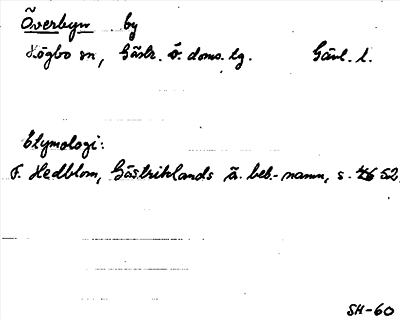 Överbyn by
Högbo sn, Gästr. ö. doms. lg. Gävl. l.
Etymologi:
F. Hedblom, Gästriklands ä. beb.-namn, s. 52.
SH-60